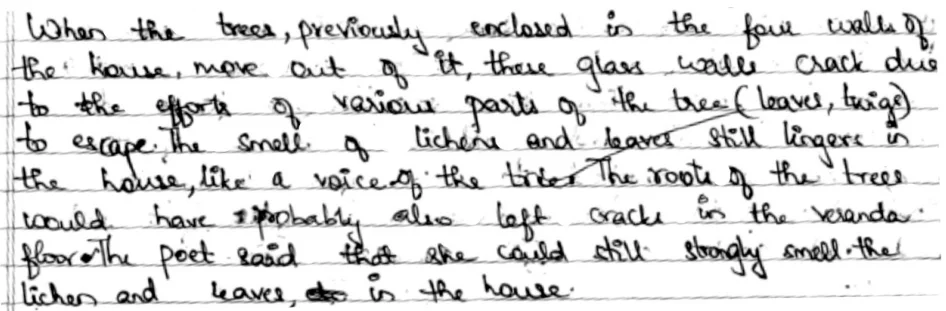 When the trees, previously enclosed in the four walls of
the house, move out of it, these glass walls crack due
to the efforts of various parts of the tree (leaves, twigs)
to escape. The smell of lichens and leaves still lingers in
the house, like a voice of the trees The roots of the trees
would have probably also left cracks in the veranda
floor. The poet said that she could still strongly smell the
lichen and leaves, in the house.